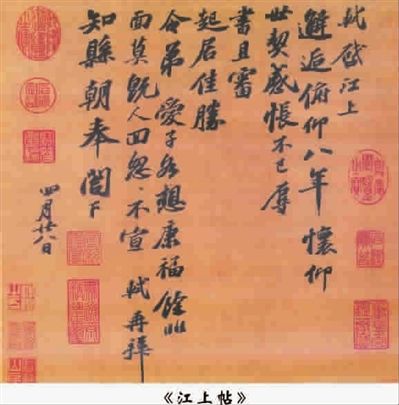 軾啟江上
邂逅俯仰八年懷仰
世契感悵不已辱
書且審
起居佳勝
令弟愛子各想康福餘非
面莫既人回怱〻不宣 軾再拜
知縣朝奉閣下
四月廿八日
《江上帖》